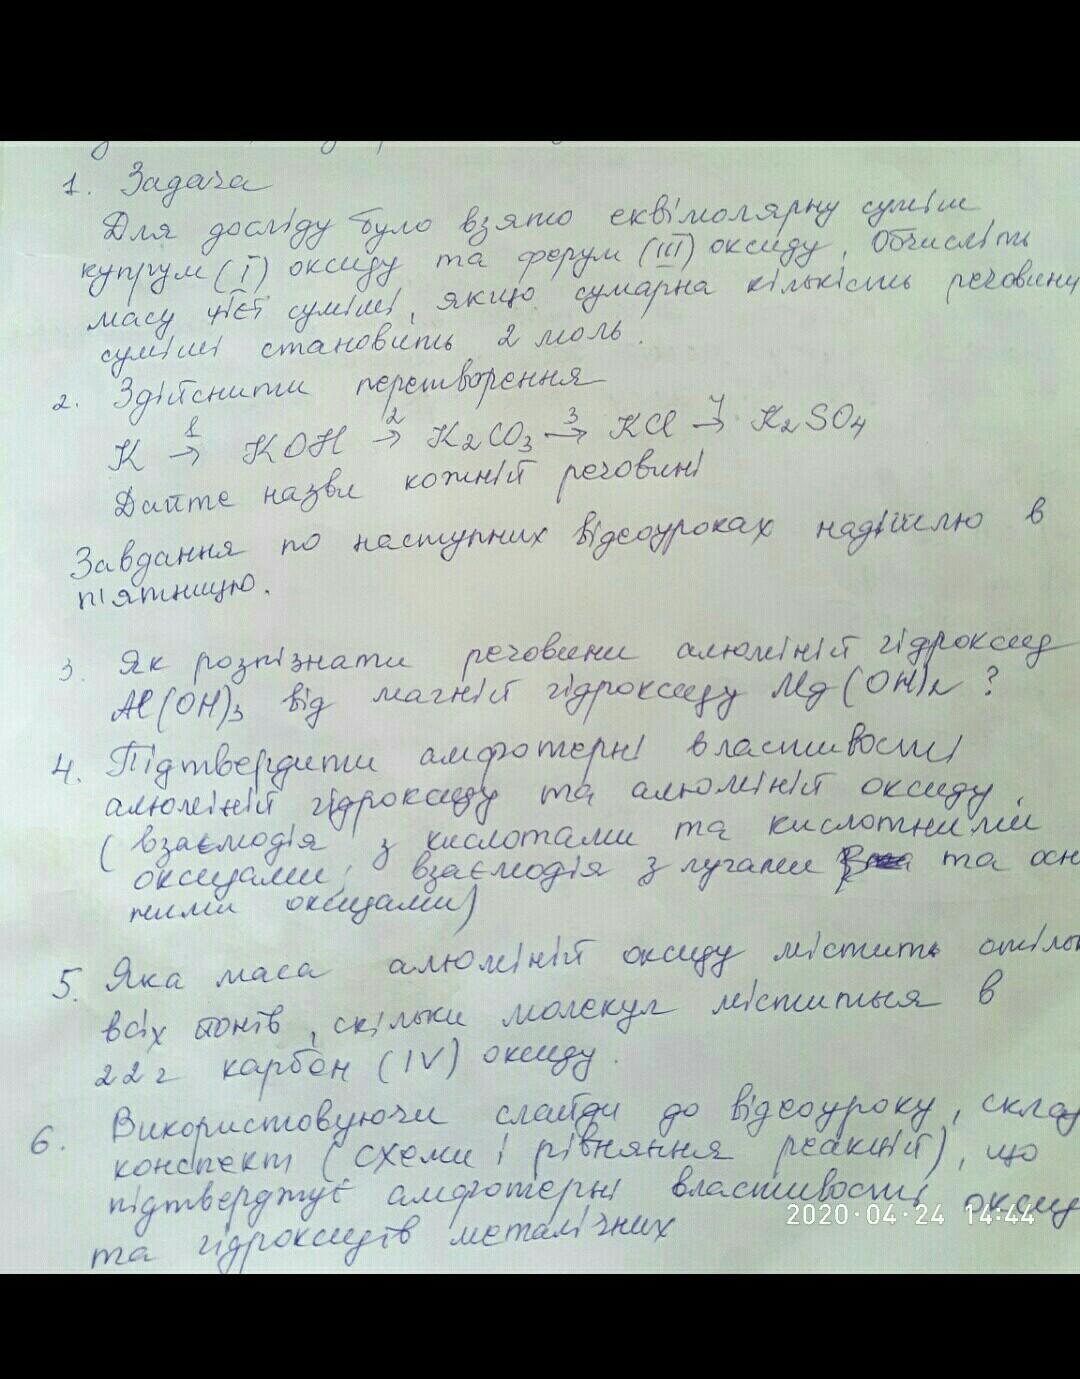 1. Задача
Для досліду було взято еквімолярну суміш
купрум (I) оксиду та ферум (III) оксиду. Обчисліть
масу цієї суміші, якщо сумарна кількість речовини
суміші становить 2 моль.
2. Здійснити перетворення
K 1→ KOH 2→ K2CO3 3→ KCl 4→ K2SO4
Дайте назви кожній речовині
Завдання по наступних відеоуроках надішлю в
п'ятницю.
3. Як розпізнати речовини алюміній гідроксид
Al(OH)3 від магній гідроксиду Mg(OH)2?
4. Підтвердити амфотерні властивості
алюміній гідроксиду та алюміній оксиду.
(взаємодія з кислотами та кислотними
оксидами; взаємодія з лугами та осн
ними оксидами)
5. Яка маса алюміній оксиду містить стільк
всіх йонів, скільки молекул міститься в
22г карбон (IV) оксиду.
6. Використовуючи слайди до відеоуроку, склад
конспект (схеми і рівняння реакцій), що
підтверджує амфотерні властивості оксид
та гідроксидів металічних
2020·04·24 14:44